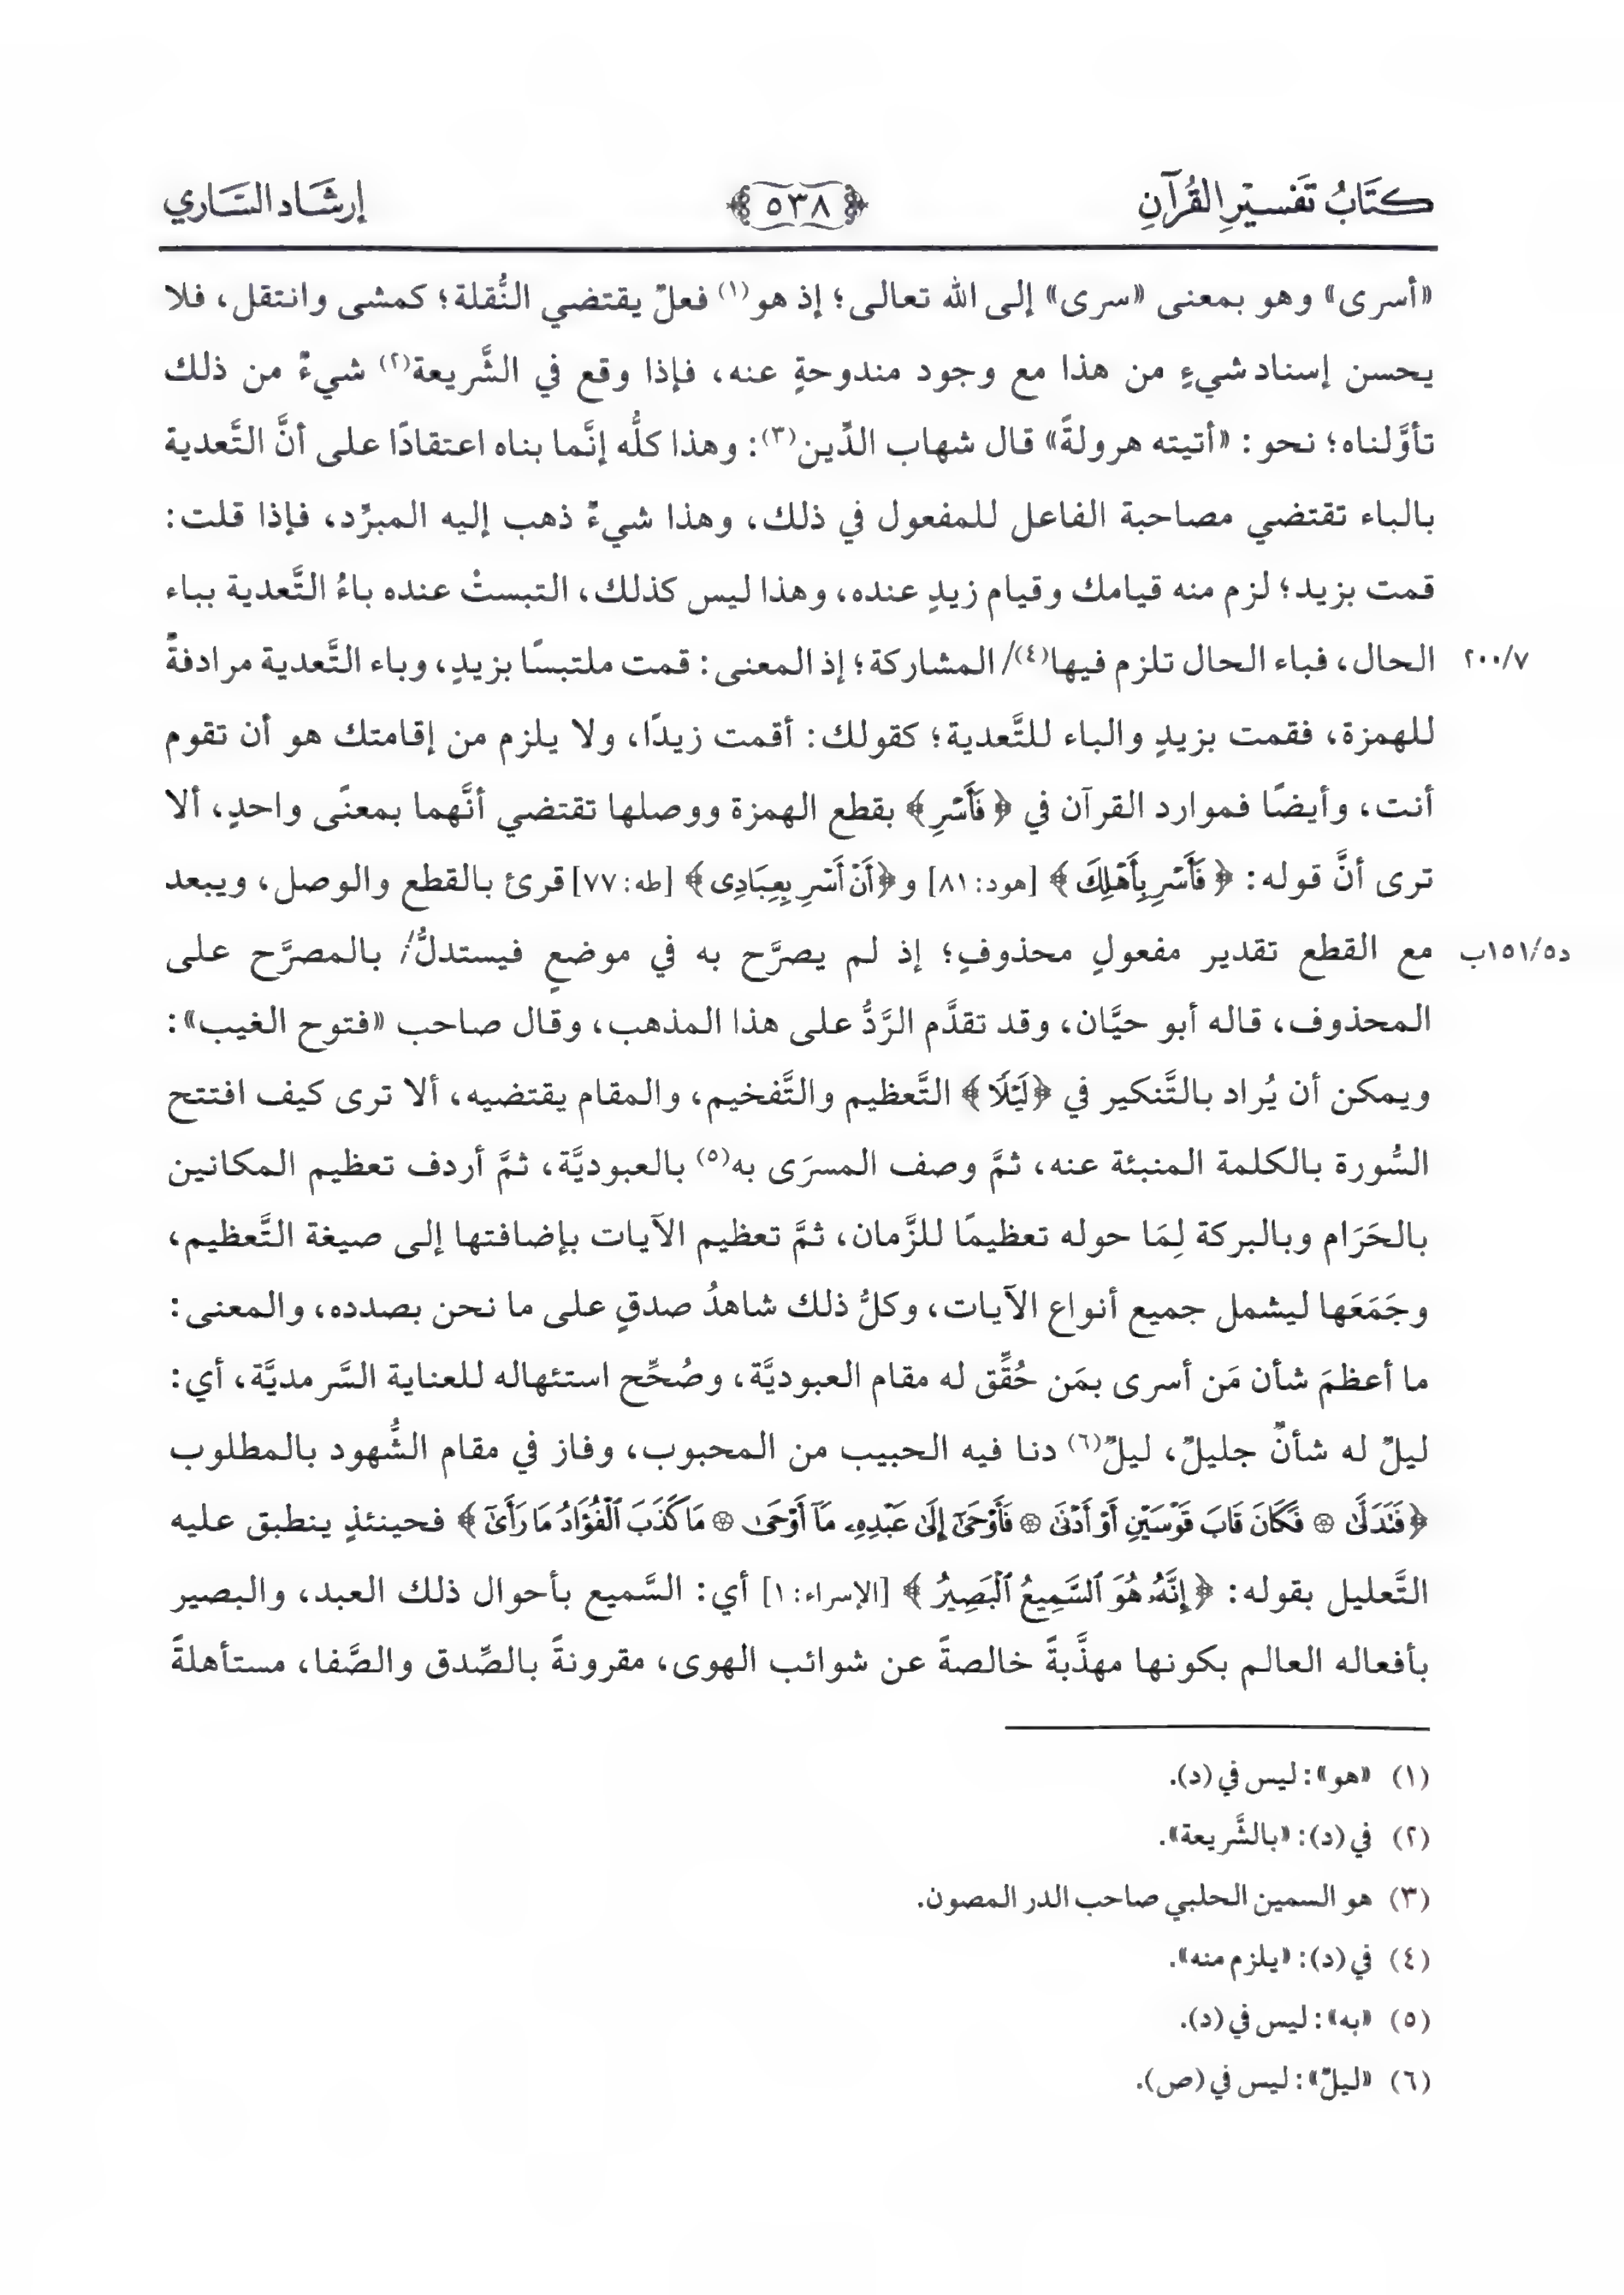 كتَابُ تَفسيْرِ القُرآنِ
٥٣٨
إرشَاد السَّاري
«أسرى» وهو بمعنى «سرى» إلى الله تعالى؛ إذ هو(١) فعلٌ يقتضي النُّقلة؛ كمشى وانتقل، فلا
يحسن إسناد شيءٍ من هذا مع وجود مندوحةٍ عنه، فإذا وقع في الشَّريعة(٢) شيءٌ من ذلك
تأوَّلناه؛ نحو: «أتيته هرولةً» قال شهاب الدِّين(٣): وهذا كلُّه إنَّما بناه اعتقادًا على أنَّ التَّعدية
بالباء تقتضي مصاحبة الفاعل للمفعول في ذلك، وهذا شيءٌ ذهب إليه المبرِّد، فإذا قلت:
قمت بزيد؛ لزم منه قيامك وقيام زيدٍ عنده، وهذا ليس كذلك، التبستْ عنده باءُ التَّعدية بباء
الحال، فباء الحال تلزم فيها(٤)/ المشاركة؛ إذ المعنى: قمت ملتبسًا بزيدٍ، وباء التَّعدية مرادفةٌ
٢٠٠/٧
للهمزة، فقمت بزيدٍ والباء للتَّعدية؛ كقولك: أقمت زيدًا، ولا يلزم من إقامتك هو أن تقوم
أنت، وأيضًا فموارد القرآن في ﴿فَأَسْرِ﴾ بقطع الهمزة ووصلها تقتضي أنَّهما بمعنًى واحدٍ، ألا
ترى أنَّ قوله: ﴿فَأَسْرِ بِأَهْلِكَ﴾ [هود: ٨١] و﴿أَنْ أَسْرِ بِعِبَادِى﴾ [طه: ٧٧] قرئ بالقطع والوصل، ويبعد
مع القطع تقدير مفعولٍ محذوفٍ؛ إذ لم يصرَّح به في موضعٍ فيستدلُّ/ بالمصرَّح على
د١٥١/٥ب
المحذوف، قاله أبو حيَّان، وقد تقدَّم الرَّدُّ على هذا المذهب، وقال صاحب «فتوح الغيب»:
ويمكن أن يُراد بالتَّنكير في ﴿لَيْلًا﴾ التَّعظيم والتَّفخيم، والمقام يقتضيه، ألا ترى كيف افتتح
السُّورة بالكلمة المنبئة عنه، ثمَّ وصف المسرَى به(٥) بالعبوديَّة، ثمَّ أردف تعظيم المكانين
بالحَرَام وبالبركة لِمَا حوله تعظيمًا للزَّمان، ثمَّ تعظيم الآيات بإضافتها إلى صيغة التَّعظيم،
وجَمَعَها ليشمل جميع أنواع الآيات، وكلُّ ذلك شاهدُ صدقٍ على ما نحن بصدده، والمعنى:
ما أعظمَ شأن مَن أسرى بمَن حُقِّق له مقام العبوديَّة، وصُحِّح استئهاله للعناية السَّرمديَّة، أي:
ليلٌ له شأنٌ جليلٌ، ليلٌ(٦) دنا فيه الحبيب من المحبوب، وفاز في مقام الشُّهود بالمطلوب
﴿فَتَدَلَّىٰ ۞ فَكَانَ قَابَ قَوْسَيْنِ أَوْ أَدْنَىٰ ۞ فَأَوْحَىٰٓ إِلَىٰ عَبْدِهِۦ مَآ أَوْحَىٰ ۞ مَا كَذَبَ ٱلْفُؤَادُ مَا رَأَىٰٓ﴾ فحينئذٍ ينطبق عليه
التَّعليل بقوله: ﴿إِنَّهُۥ هُوَ ٱلسَّمِيعُ ٱلْبَصِيرُ﴾ [الإسراء: ١] أي: السَّميع بأحوال ذلك العبد، والبصير
بأفعاله العالم بكونها مهذَّبةً خالصةً عن شوائب الهوى، مقرونةً بالصِّدق والصَّفا، مستأهلةً
(١) «هو»: ليس في (د).
(٢) في (د): «بالشَّريعة».
(٣) هو السمين الحلبي صاحب الدر المصون.
(٤) في (د): «يلزم منه».
(٥) «به»: ليس في (د).
(٦) «ليلٌ»: ليس في (ص).